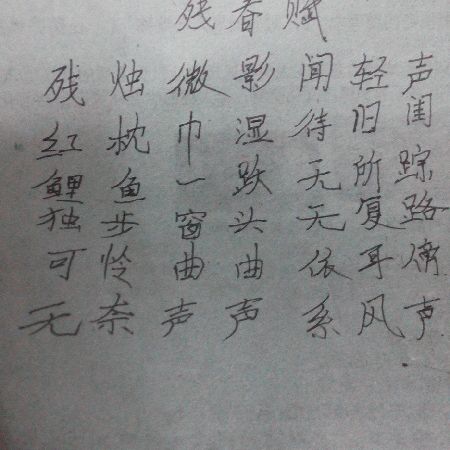 残春赋
残烛微影闻轻声
红枕巾湿待旧闺
鲤鱼一跃无所踪
独步窗头无复路
可怜曲曲依耳偏
无奈声声系风声